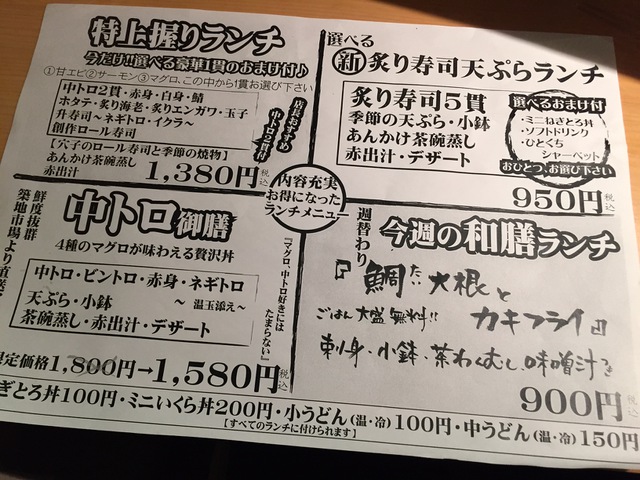 特上握りランチ
今だけ!!選べる豪華1貫のおまけ付♪
①甘エビ②サーモン③マグロ、この中から1貫お選び下さい
中トロ2貫・赤身・白身・鯖
ホタテ・炙り海老・炙りエンガワ・玉子
升寿司〜ネギトロ・イクラ〜
創作ロール寿司
店長おすすめ
中トロ2貫付
【穴子のロール寿司と季節の焼物】
あんかけ茶碗蒸し
赤出汁
1,380円税込
選べる
新 炙り寿司天ぷらランチ
炙り寿司5貫
季節の天ぷら・小鉢
あんかけ茶碗蒸し
赤出汁・デザート
選べるおまけ付
・ミニねぎとろ丼
・ソフトドリンク
・ひとくち
シャーベット
おひとつ、お選び下さい
950円税込
内容充実
お得になった
ランチメニュー
鮮度抜群
築地市場より直送
中トロ御膳
4種のマグロが味わえる贅沢丼
中トロ・ビントロ・赤身・ネギトロ
〜温玉添え〜
天ぷら・小鉢
茶碗蒸し・赤出汁・デザート
『マグロ、中トロ好きには
たまらない』
定価格1,800円→1,580円税込
週替わり
今週の和膳ランチ
『鯛たい大根と
カキフライ』
ごはん大盛無料!!
刺身・小鉢・茶わんむし・味噌汁
900円税込
ぎとろ丼100円・ミニいくら丼200円・小うどん(温・冷)100円・中うどん(温・冷)150円
【すべてのランチに付けられます】